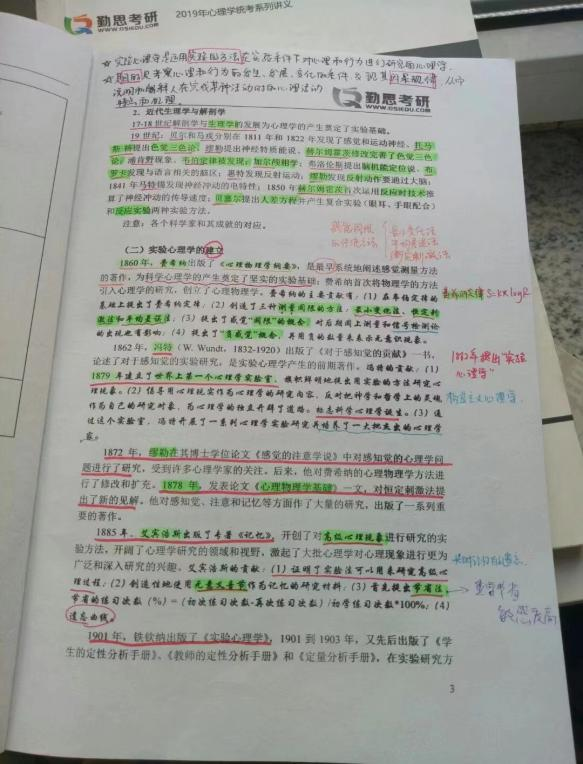 勤思考研
WWW.QSIEDU.COM
2019年心理学统考系列讲义
☆ 实验心理学是运用实验的方法在控制条件下对心理和行为进行研究的心理学.
勤思考研
2. 近代生理学与解剖学
17-18 世纪解剖学与生理学的发展为心理学的产生奠定了实验基础。
19 世纪：贝尔和马戎分别在 1811 年和 1822 年发现了感觉和运动神经、托马
斯·杨提出色觉三色论、缪勒提出神经特质能说、赫尔姆霍茨修改完善了色觉三色
论；浦肯野现象、布伯定律被发现；加尔颅相学；弗洛伦斯提出脑机能定位说、布
罗卡发现与语言相关的脑区；惠特发现反射运动；缪勒发现反射动作要通过大脑；
1841 年马特锡发现神经冲动的电特性；1850 年赫尔姆霍茨首次运用反应时技术推
算了神经冲动的传导速度；贝塞尔提出人差方程并产生复合实验（眼耳、手眼配合）
和反应实验两种实验方法。
注意：各个科学家和其成就的对应。
（二）实验心理学的建立
1860 年，费希纳出版了《心理物理学纲要》，是最早系统地阐述感觉测量方法
的著作，为科学心理学的产生奠定了坚实的实验基础；费希纳首次将物理学的方法
引入心理学的研究，创立了心理物理学。费希纳的主要贡献有：（1）在韦伯定律的
基础上提出了费希纳定律；（2）创造了三种测量阈限的方法：最小变化法、恒定刺
激法和平均差误法；（3）提出了感觉“阈限”的概念，对后期阈上测量和信号检测论
的出现也有影响；（4）提出了“负感觉”概念，并用负的数量来表示无意识现象。
S=k×logR
1862 年，冯特（W. Wundt，1832-1920）出版了《对于感知觉的贡献》一书，
论述了对于感知觉的实验研究，是实验心理学产生的前期著作。冯特的贡献：（1）
1879 年建立了世界上第一个心理学实验室，旗帜鲜明地提出用实验的方法研究心
理现象。（2）倡导用心理现实作为心理学的研究内容，反对把神学和哲学上的灵魂
作为自己的研究对象，为心理学的独立开辟了道路。标志科学心理学诞生。（3）通
过这个实验室，冯特开展了一系列心理学实验研究并培养了一大批杰出的心理学
家。
1862年提出“实验
心理学”
构造主义心理学.
1872 年，缪勒在其博士学位论文《感觉的注意学说》中对感知觉的心理学问
题进行了研究，受到许多心理学家的关注。后来，他对费希纳的心理物理学方法进
行了修改和扩充。1878 年，发表论文《心理物理学基础》一文，对恒定刺激法提
出了新的见解。他对感知觉、注意和记忆等方面作了大量的研究，出版了一系列重
要的著作。
1885 年，艾宾浩斯出版了专著《记忆》，开创了对高级心理现象进行研究的实
验方法，开阔了心理学研究的领域和视野，激起了大批心理学对心理现象进行更为
广泛和深入研究的兴趣。艾宾浩斯的贡献：（1）证明了实验法可以用来研究高级心
理过程；（2）创造性地使用无意义音节作为记忆的研究材料；（3）首先提出节省法，
节省的练习次数（%）=（初次练习次数-再次练习次数）/初学练习次数*100%；（4）
遗忘曲线。
1901 年，铁钦纳出版了《实验心理学》，1901 到 1903 年，又先后出版了《学
生的定性分析手册》、《教师的定性分析手册》和《定量分析手册》，在实验研究方
3